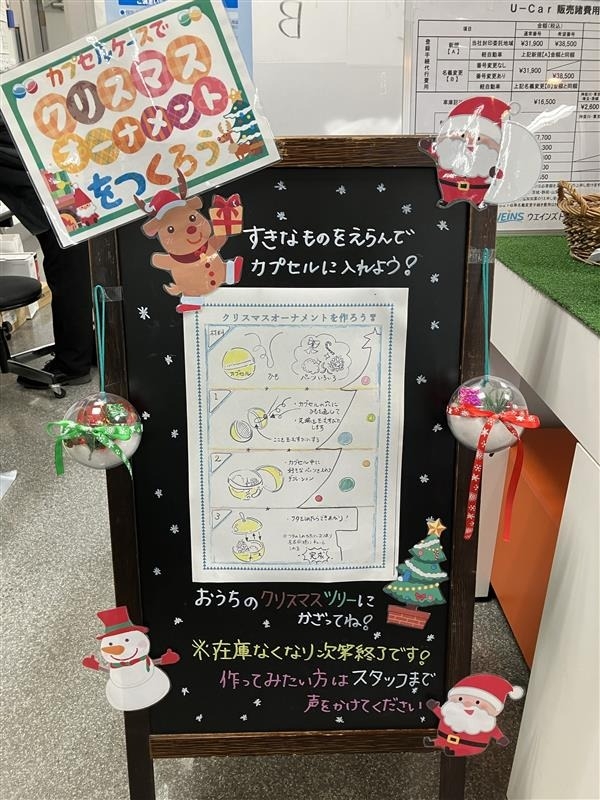 カプセルケースで
クリスマス
オーナメント
をつくろう
B
U-Car 販売諸費用
項目
金額(税込)
登録手続代行費用
当社封印委託地域
¥31,900
¥38,500
軽自動車
番号変更なし
¥31,900
名義変更
【B】
番号変更あり
¥38,500
軽自動車
上記名義変更【B】金額と同額
¥16,500
¥2,600
WEINS ウエインズト
すきなものをえらんで
カプセルに入れよう?
クリスマスオーナメントを作ろう
材料
カプセル
ひも
パーツいろいろ
1
・カプセルの穴に
ひもを通して
2
・カプセル中に
好きなパーツを入れ
デコレーション
3
完成
おうちのクリスマスツリーに
かざってね?
※在庫なくなり次第終了です?
作ってみたい方はスタッフまで
声をかけてください